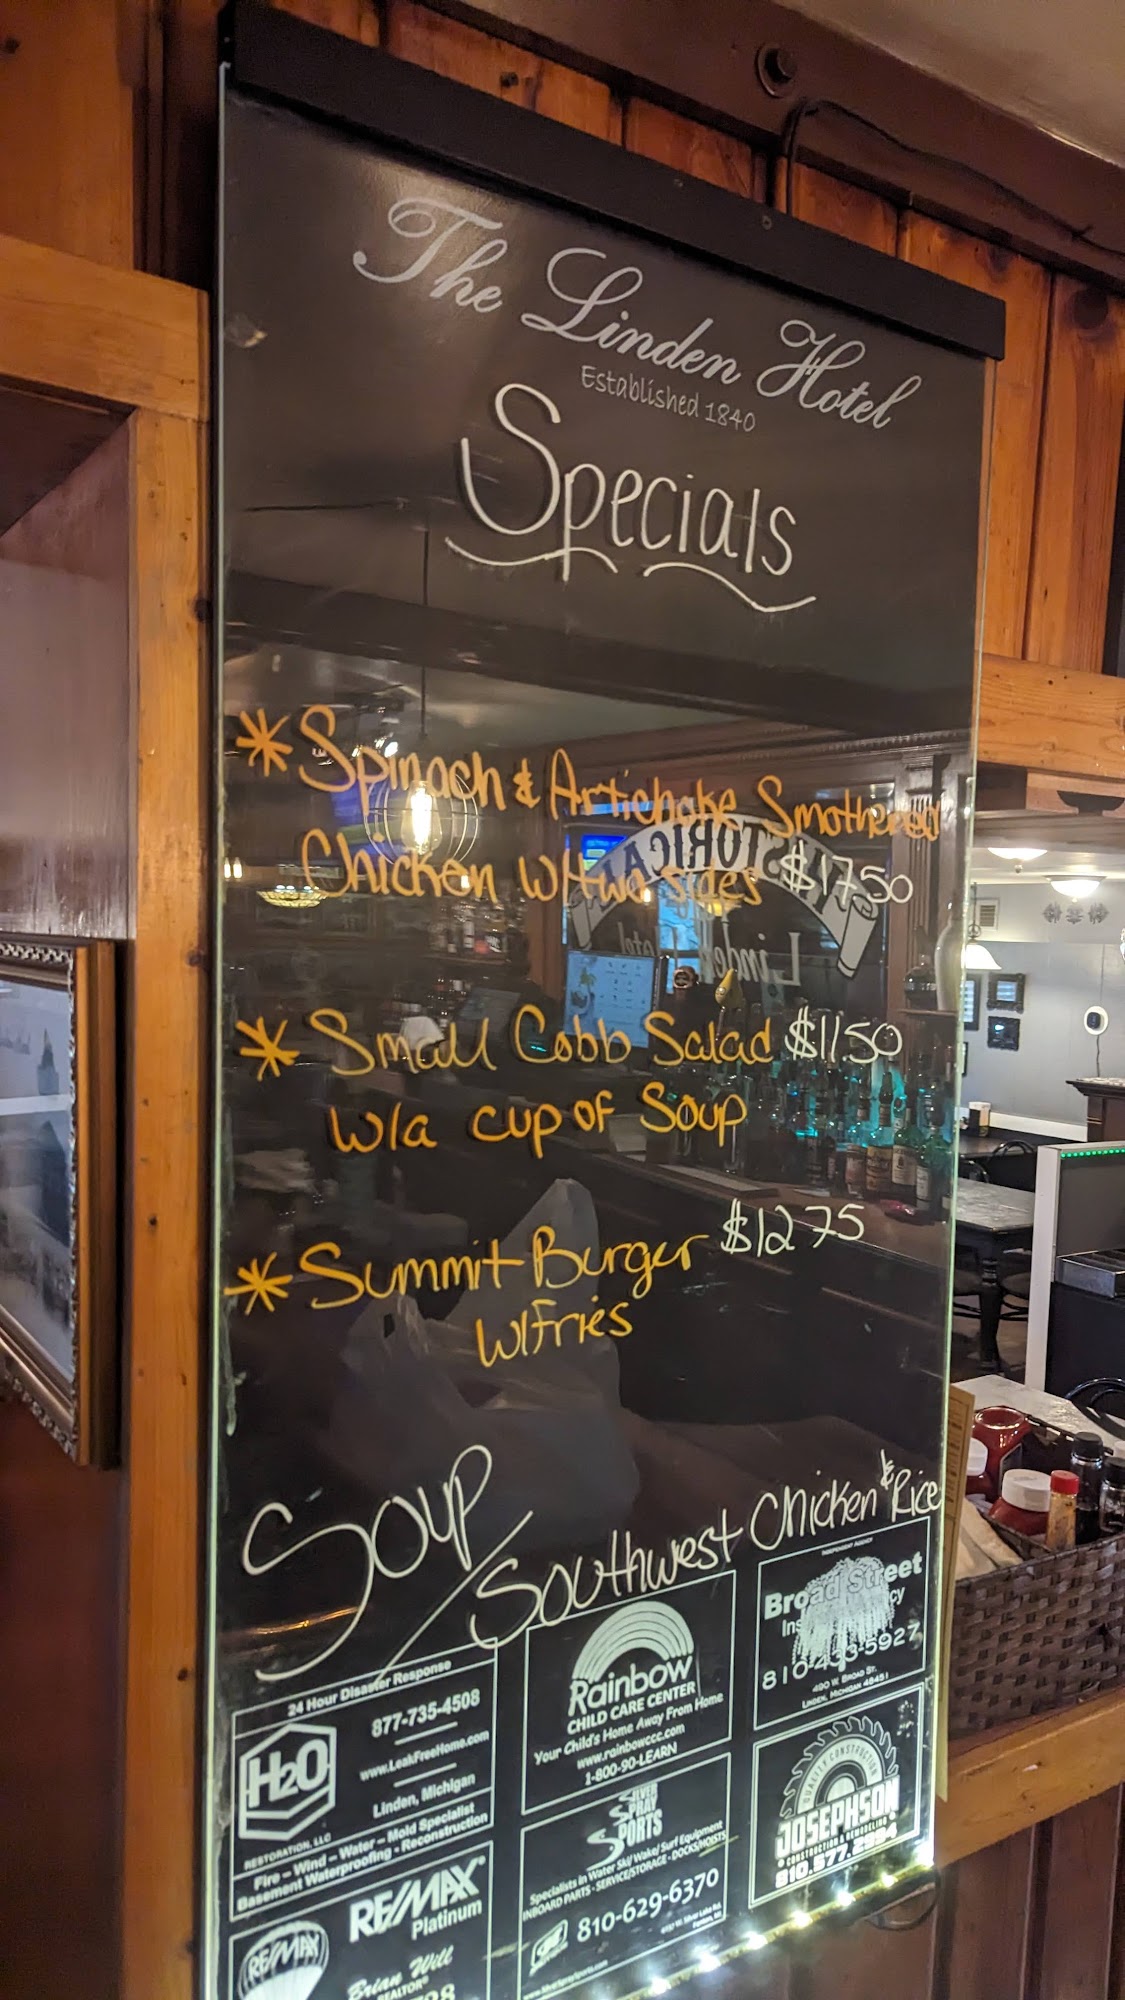 The Linden Hotel
Established 1840
Specials
* Spinach & Artichoke Smothered
Chicken w/two sides $17.50
* Small Cobb Salad $11.50
w/a cup of Soup
* Summit Burger $12.75
w/Fries
Soup/Southwest Chicken & Rice
24 Hour Disaster Response
H2O
RESTORATION, LLC
877-735-4508
www.LeakFreeHome.com
Linden, Michigan
Fire – Wind – Water – Mold Specialist
Basement Waterproofing - Reconstruction
Rainbow
CHILD CARE CENTER
Your Child's Home Away From Home
www.rainbowccc.com
1-800-90-LEARN
INDEPENDENT AGENCY
Broad Street
810-433-5927
490 W. BROAD ST.
LINDEN, MICHIGAN 48451
RE/MAX
Platinum
RE/MAX
Brian Will
REALTOR®
SILVER
SPRAY
SPORTS
Specialists in Water Ski/ Wake/ Surf Equipment
INBOARD PARTS - SERVICE/STORAGE - DOCKS/HOISTS
810-629-6370
www.SilverSpraySports.com
QUALITY CONSTRUCTION
JOSEPHSON
CONSTRUCTION & REMODELING
810.577.2994
HISTORICAL
Linden Hotel